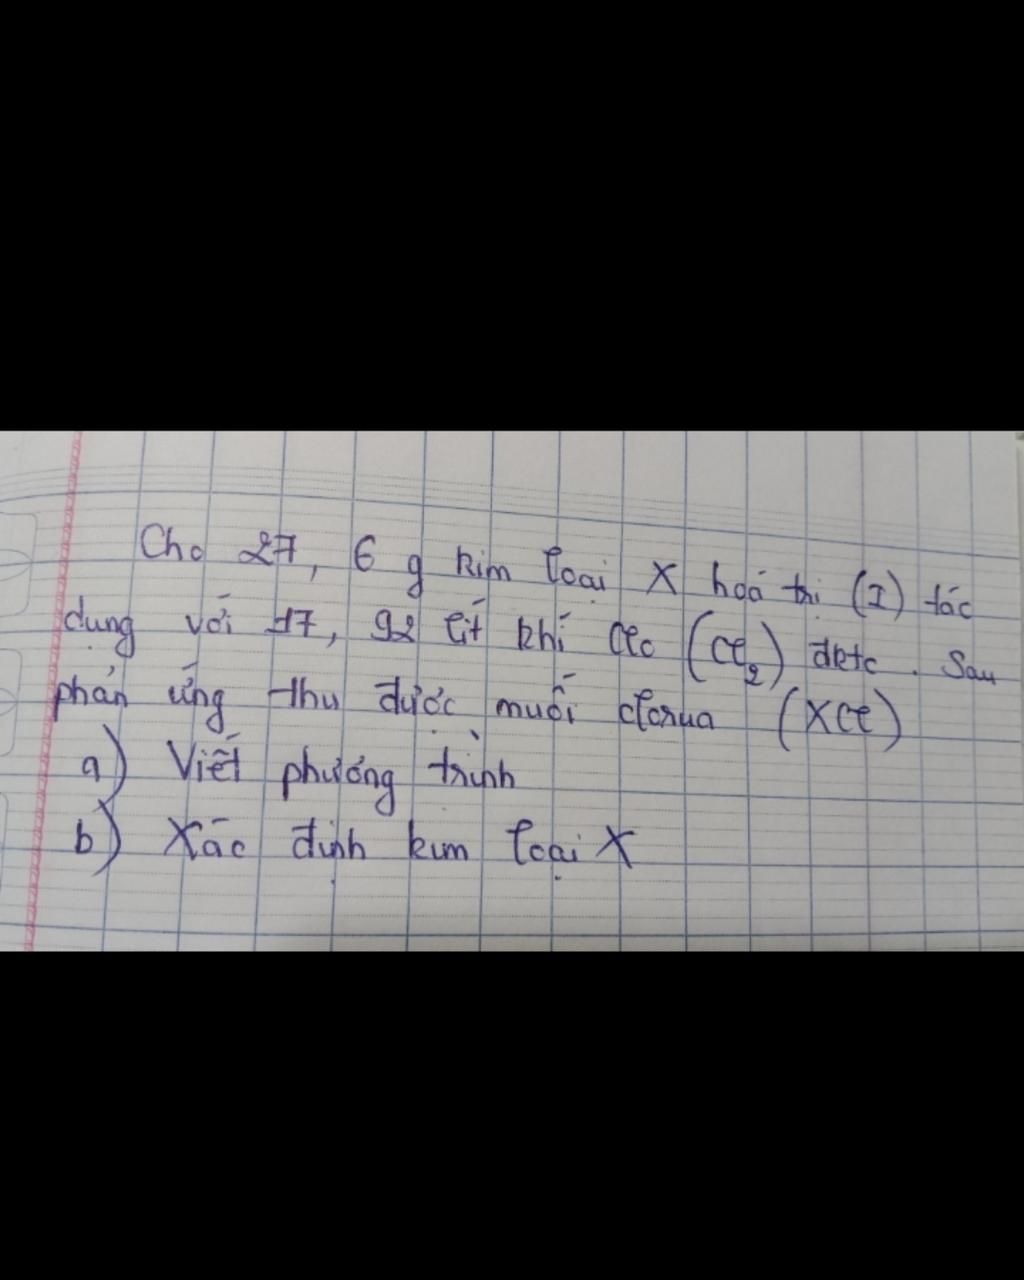 Cho 27, 6 g kim loại X hoá trị (I) tác
dụng với 17, 92 lít khí Clo (Cl2) đktc. Sau
phản ứng thu được muối clorua (XCl)
a) Viết phương trình
b) Xác định kim loại X